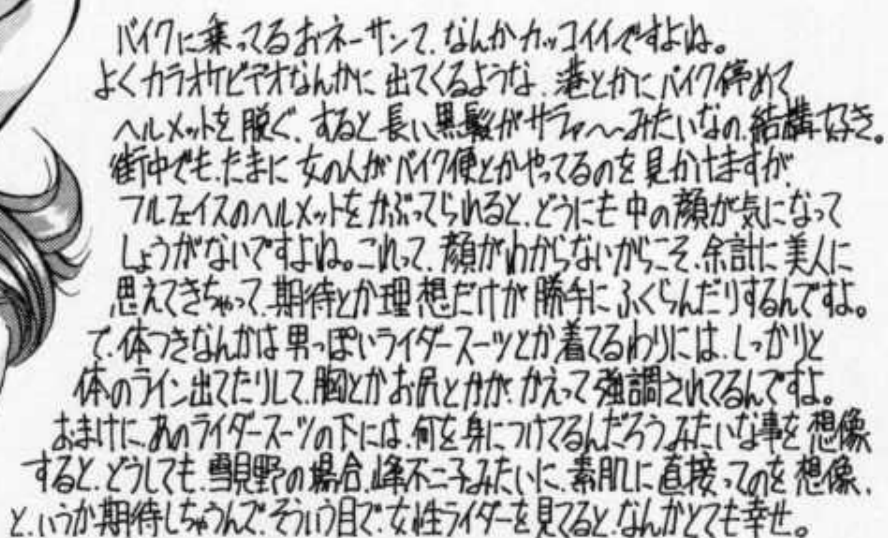 バイクに乗ってるおネーサンて、なんかカッコイイですよね。
よくカラオケビデオなんかに出てくるような、港とかにバイク停めて
ヘルメットを脱ぐ、すると長い黒髪がサラァ〜〜みたいなの、結構好き。
街中でも、たまに女の人がバイク便とかやってるのを見かけますが、
フルフェイスのヘルメットをかぶってられると、どうにも中の顔が気になって
しょうがないですよね。これって、顔がわからないからこそ、余計に美人に
思えてきちゃって、期待とか理想だけが勝手にふくらんだりするんですよ。
で、体つきなんかは男っぽいライダースーツとか着てるわりには、しっかりと
体のライン出てたりして、胸とかお尻とかが、かえって強調されてるんですよ。
おまけに、あのライダースーツの下には、何を身につけてるんだろうみたいな事を想像
すると、どうしても、雪見野の場合、峰不二子みたいに、素肌に直接ってのを想像、
と、いうか期待しちゃうんで、そういう目で、女性ライダーを見てると、なんかとても幸せ。